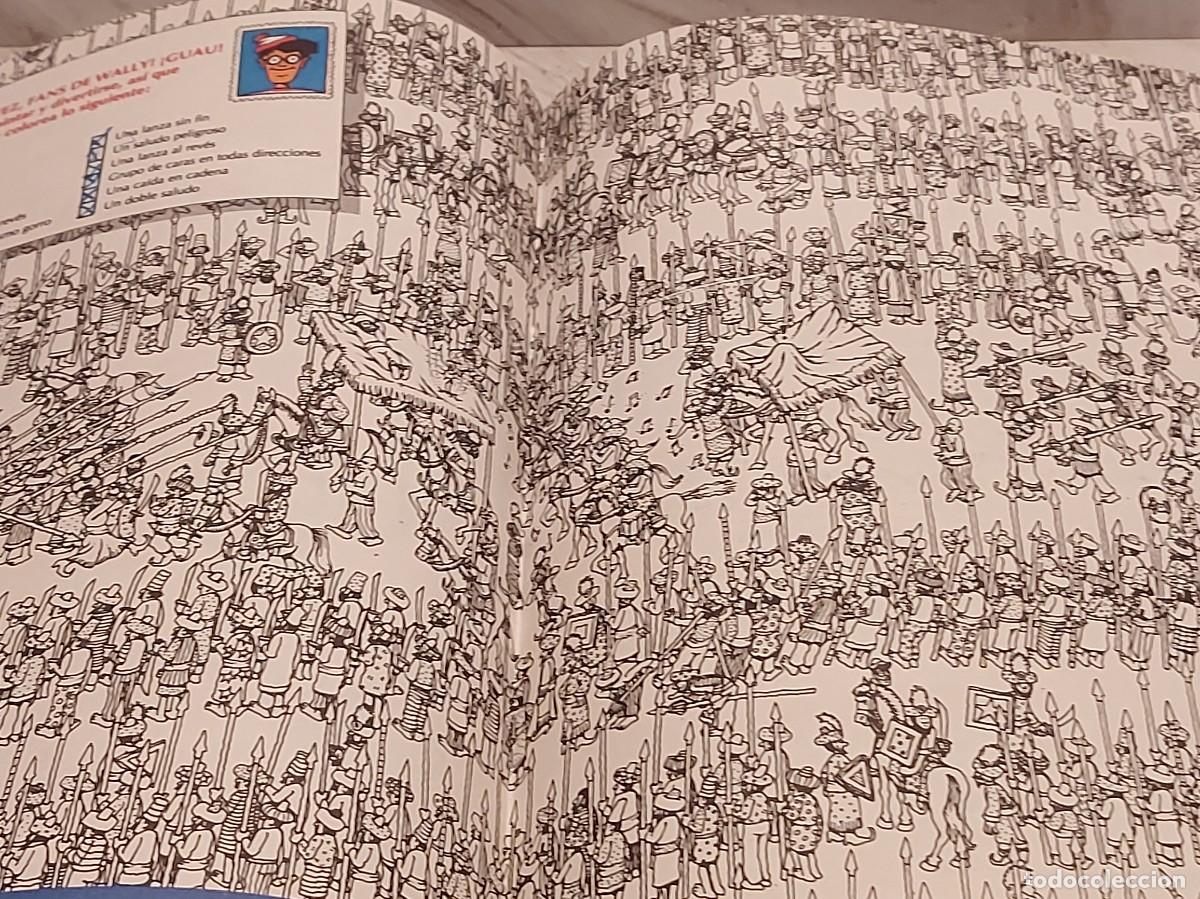 EZ, FANS DE WALLY! ¡GUAU!
y divertirse, así que
colorea lo siguiente:
Una lanza sin fin
Un saludo peligroso
Una lanza al revés
Grupo de caras en todas direcciones
Una caída en cadena
Un doble saludo
revés
gorro
todocoleccion